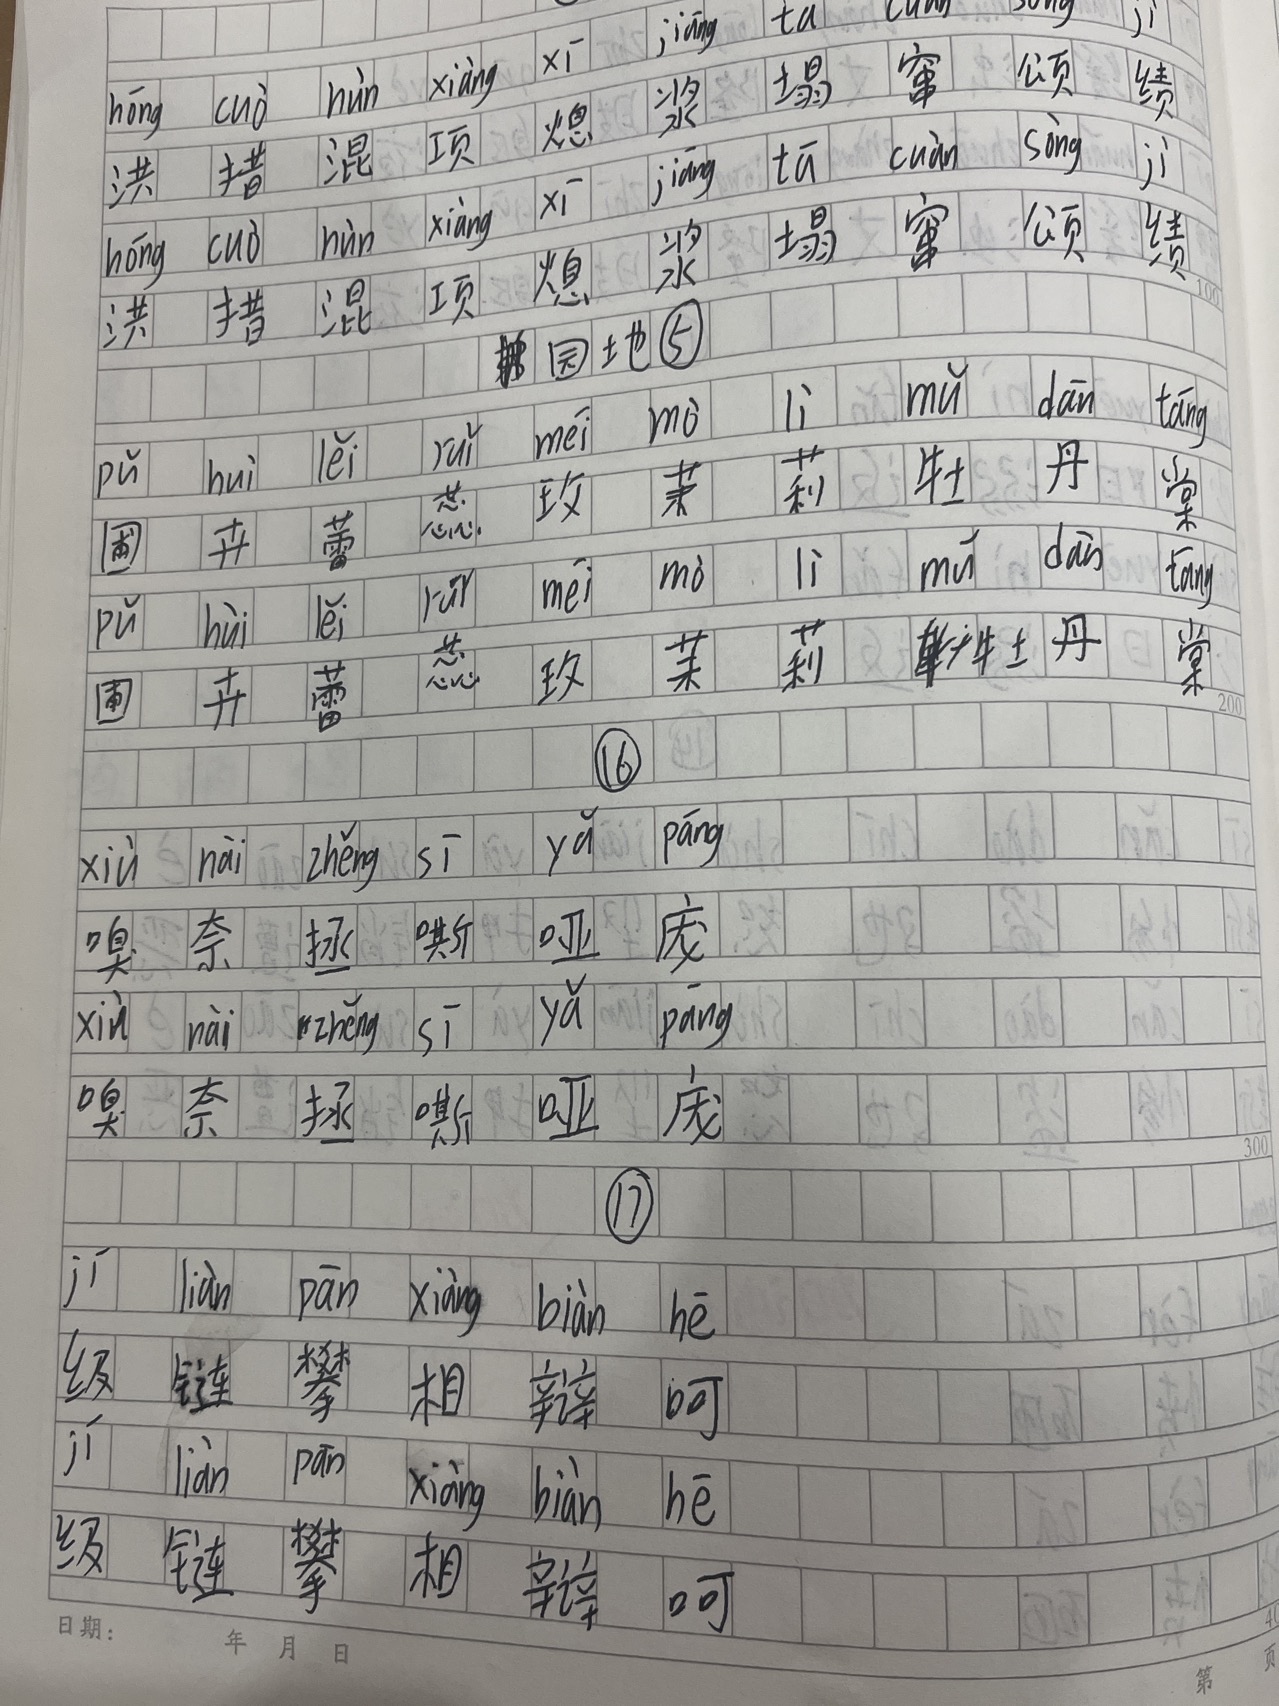 hōng cuò hùn xiàng xī jiāng tā cuàn sòng jì
洪 措 混 项 熄 浆 塌 窜 颂 绩
hōng cuò hùn xiàng xī jiāng tā cuàn sòng jì
洪 措 混 项 熄 浆 塌 窜 颂 绩
100
园地⑤
pǔ huì lěi ruǐ méi mò lì mǔ dān táng
圃 卉 蕾 蕊 玫 茉 莉 牡 丹 棠
pǔ hùi lěi méi mò lì mǔ dān táng
圃 卉 蕾 蕊 玫 茉 莉 牡 丹 棠
200
⑯
xiù nài zhěng sī yǎ páng
嗅 奈 拯 嘶 哑 庞
xiù nài zhěng sī yǎ páng
嗅 奈 拯 嘶 哑 庞
300
⑰
jí liàn pān xiàng biàn hē
级 链 攀 相 辩 呵
jí liàn pān xiàng biàn hē
级 链 攀 相 辩 呵
日期: 年 月 日
第 页